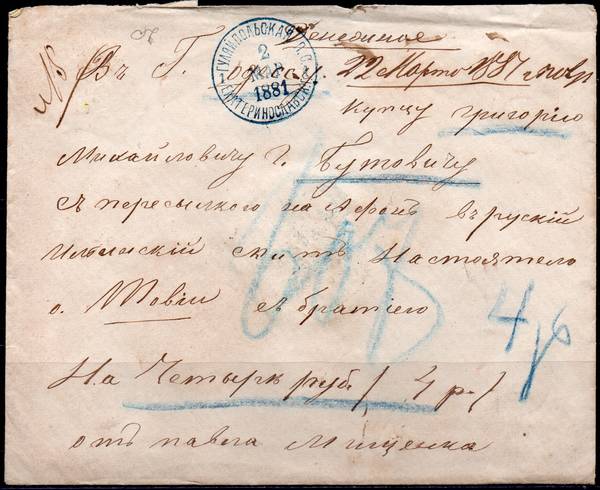 Денежное
Въ Г. Одессу. 22 Марта 1881 г.
ГУЛЯЙПОЛЬСКАЯ П.С. ЕКАТЕРИНОСЛАВСК.
2
МАР
1881
1
купцу григорію
Михайловичу Г. Бутовичу
съ пересылкою на Афонъ въ рускій
Ильинскій скитъ Настоятелю
о. Товіи съ братіею
4 р
На Четыри руб / 4 р. /
отъ павла Мищенка